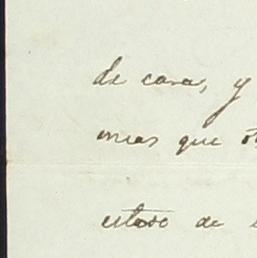 de casa, y
mas que
estado de